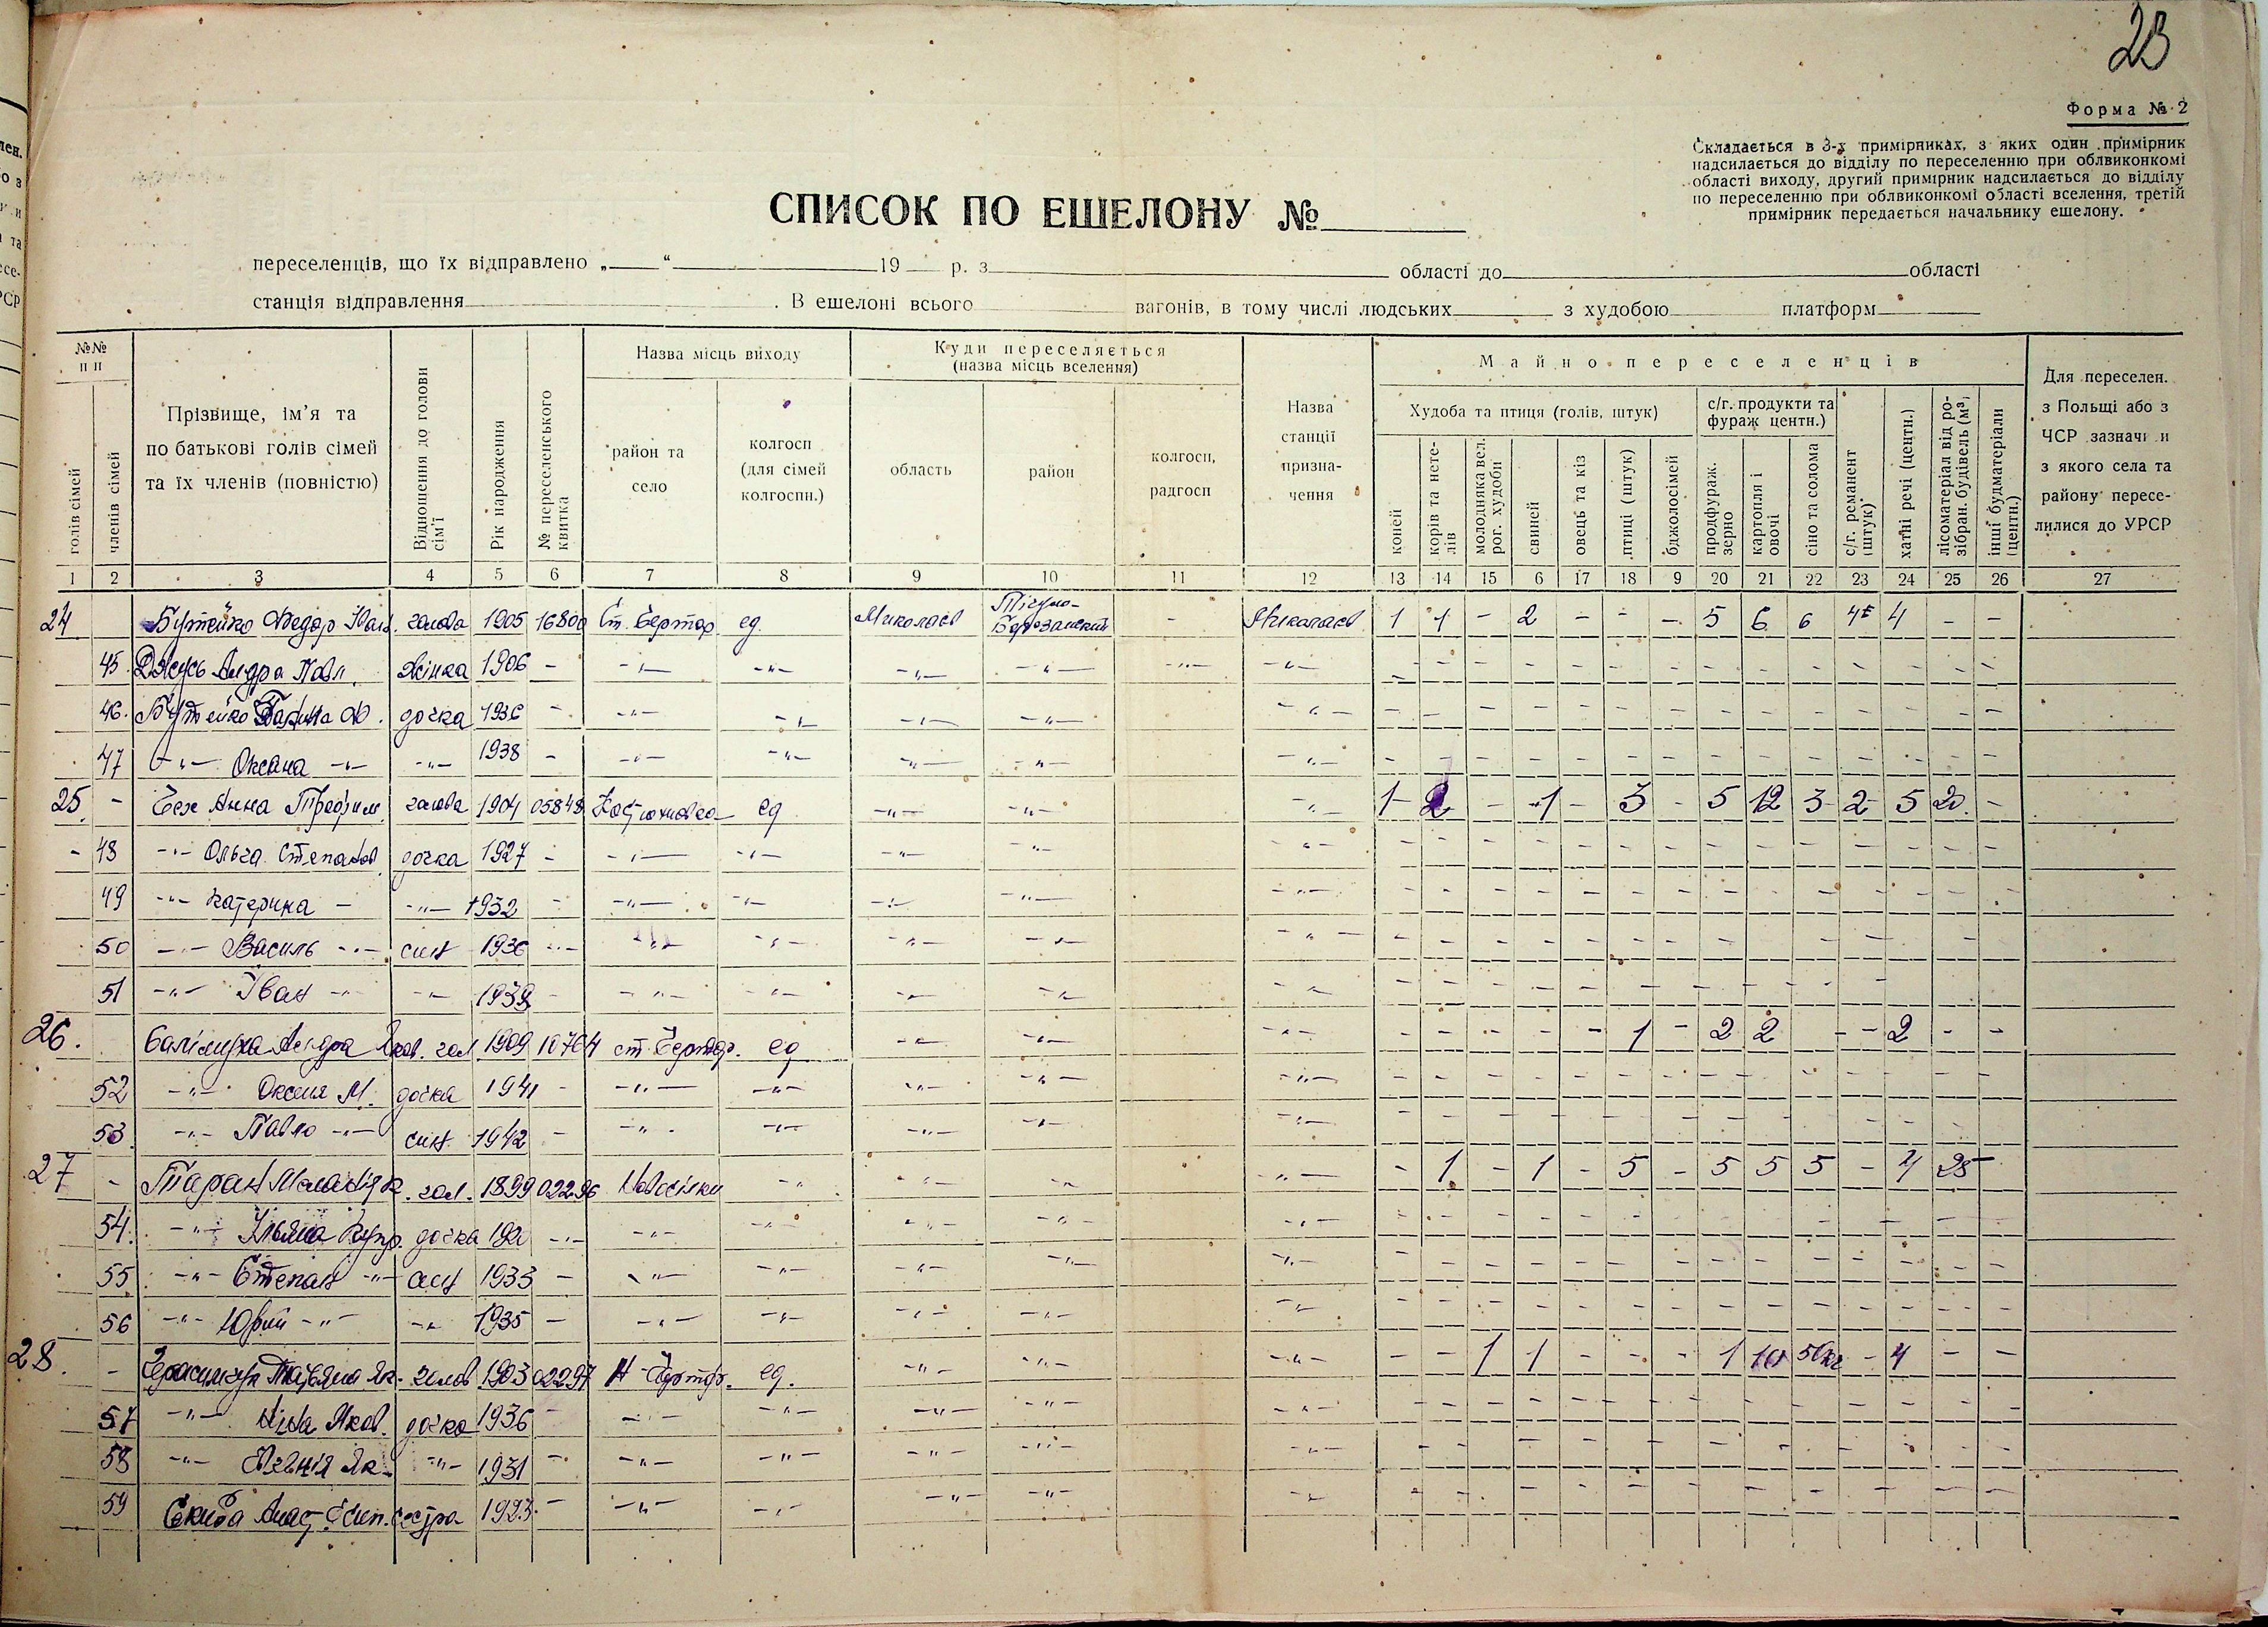 23
Форма № 2
Складається в 3-х примірниках, з яких один примірник
надсилається до відділу по переселенню при облвиконкомі
області виходу, другий примірник надсилається до відділу
по переселенню при облвиконкомі області вселення, третій
примірник передається начальнику ешелону.
СПИСОК ПО ЕШЕЛОНУ №
переселенців, що їх відправлено „ “ 19 р. з області до області
станція відправлення . В ешелоні всього вагонів, в тому числі людських з худобою платформ
№№ пп
голів сімей
членів сімей
Прізвище, ім’я та
по батькові голів сімей
та їх членів (повністю)
Відношення до голови сім’ї
Рік народження
№ переселенського квитка
Назва місць виходу
район та село
колгосп (для сімей колгоспн.)
Куди переселяється
(назва місць вселення)
область
район
колгосп, радгосп
Назва станції призна-чення
Майно переселенців
Худоба та птиця (голів, штук)
коней
корів та нете-лів
молодняка вел. рог. худоби
свиней
овець та кіз
птиці (штук)
бджолосімей
с/г. продукти та фураж центн.)
продфураж. зерно
картопля і овочі
сіно та солома
с/г. реманент (штук)
хатні речі (центн.)
лісоматеріал від ро-зібран. будівель (м³)
інші будматеріали (центн.)
Для переселен.
з Польщі або з
ЧСР зазначи и
з якого села та
району пересе-
лилися до УРСР
1 2 3 4 5 6 7 8 9 10 11 12 13 14 15 6 17 18 9 20 21 22 23 24 25 26 27
24 Бутейко Федор Іван. голова 1905 16800 Ст. Чертор. ед. Миколаєв Тігуло-Березанский - Миколаєв 1 1 - 2 - - - 5 6 6 4 - -
45. Павл. жінка 1906 - -"- -"- -"- -"- -"- -"-
46. Бутейко Ф. дочка 1936 - -"- -"- -"- -"- -"-
47 -"- Оксана -"- -"- 1938 - -"- -"- -"- -"- -"-
25. - Бех Анна Трофим. голова 1904 05848 Костюхновка ед -"- -"- -"- 1 - 2 - - 1 - 3 - 5 12 3 - 2 - 5 20. -
- 48 -"- Ольга Степанов дочка 1927 - -"- -"- -"- -"- -"-
49 -"- Катерина - -"- 1932 - -"- -"- -"- -"- -"-
50 -"- Василь -"- син 1936 -"- -"- -"- -"- -"- -"-
51 -"- Іван -"- -"- 1939 - -"- -"- -"- -"- -"-
26. Яков. гол. 1909 10764 ст. Чертор. ед -"- -"- -"- - - - - - 1 - 2 2 - - 2 - -
52 -"- М. дочка 1941 - -"- -"- -"- -"- -"-
53. -"- Павло -"- син 1942 - -"- -"- -"- -"- -"-
27 - Таран гол. 1899 02296 Новосілки -"- -"- -"- -"- - 1 - 1 - 5 - 5 5 5 - 4 25 -
54. -"- Ульяна дочка -"- -"- -"- -"- -"- -"-
55 -"- Степан -"- син 1933 - -"- -"- -"- -"- -"-
56 -"- Юрий -"- -"- 1935 - -"- -"- -"- -"- -"-
28. - Тат'яна Як. голов 1903 02297 Н-Чертор. ед. -"- -"- -"- - - 1 1 - - - 1 10 50кг - 4 - -
57 -"- Ніна Яков. дочка 1936 - -"- -"- -"- -"- -"-
58 -"- Як. -"- 1931 - -"- -"- -"- -"- -"-
59 Скиба Анаст. сестра 1923. - -"- -"- -"- -"- -"-